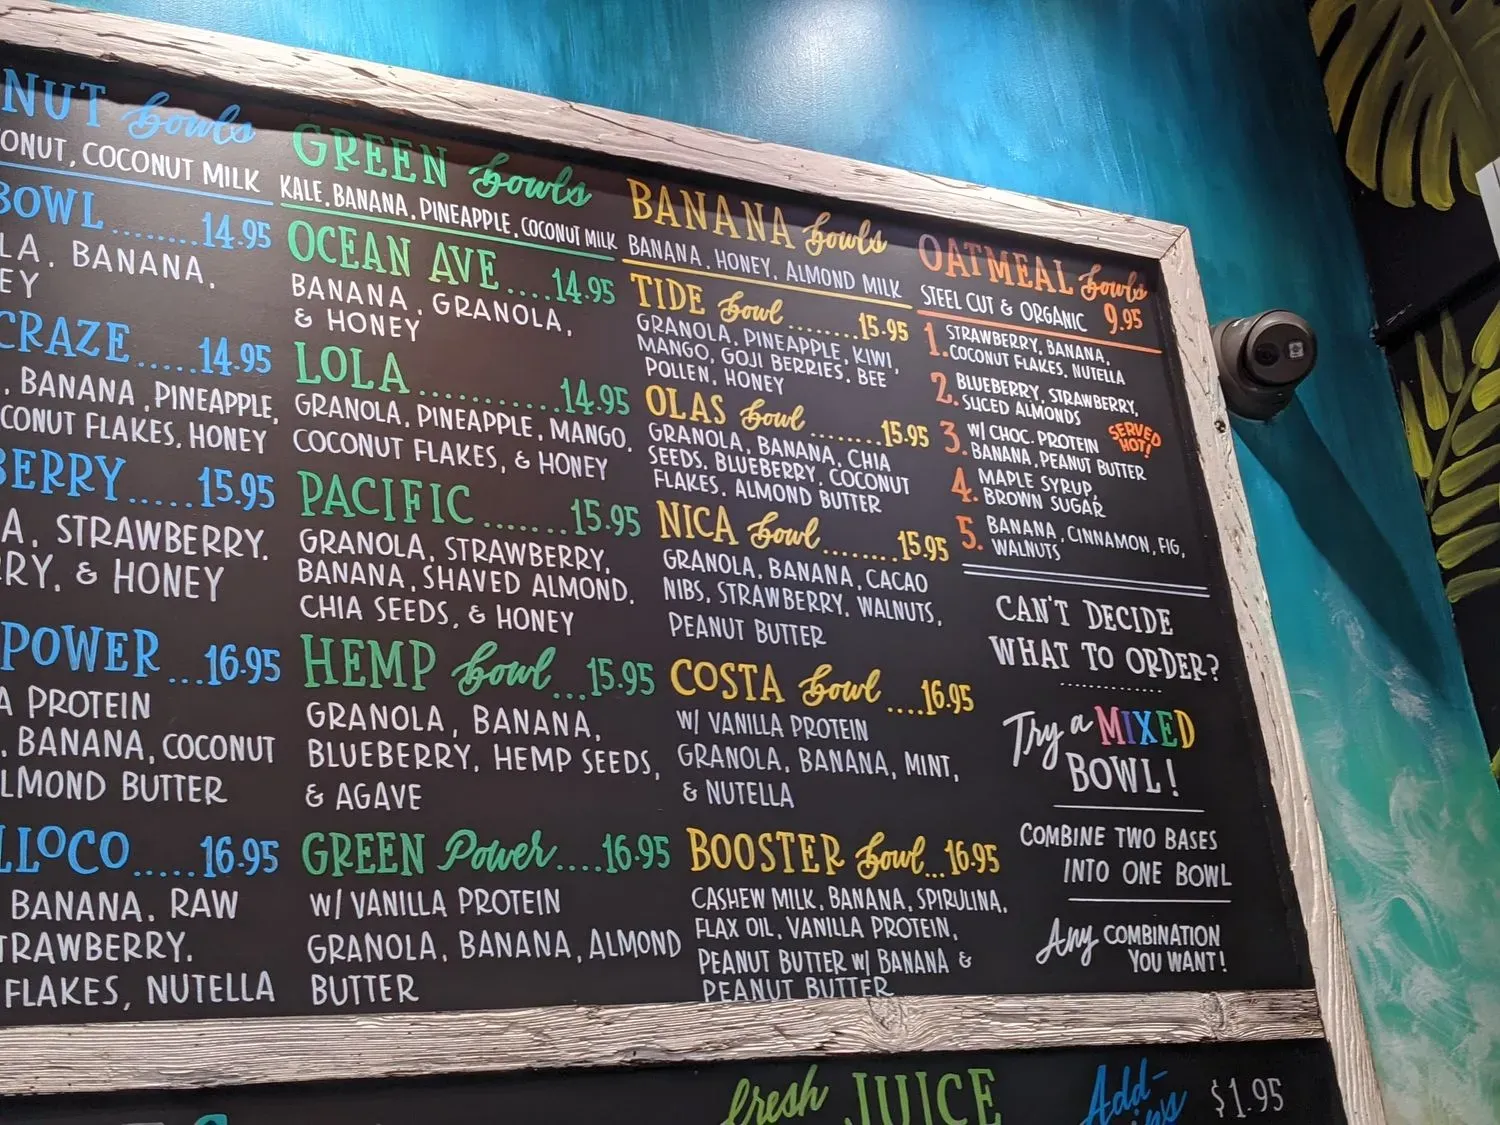 NUT Bowls
CONUT, COCONUT MILK
BOWL........14.95
LA, BANANA,
EY
CRAZE.....14.95
, BANANA, PINEAPPLE,
CONUT FLAKES, HONEY
BERRY.....15.95
A, STRAWBERRY,
RRY, & HONEY
POWER...16.95
A PROTEIN
, BANANA, COCONUT
ALMOND BUTTER
LLOCO.....16.95
BANANA, RAW
TRAWBERRY,
FLAKES, NUTELLA
GREEN Bowls
KALE, BANANA, PINEAPPLE, COCONUT MILK
OCEAN AVE....14.95
BANANA, GRANOLA,
& HONEY
LOLA............14.95
GRANOLA, PINEAPPLE, MANGO,
COCONUT FLAKES, & HONEY
PACIFIC.......15.95
GRANOLA, STRAWBERRY,
BANANA, SHAVED ALMOND,
CHIA SEEDS, & HONEY
HEMP Bowl...15.95
GRANOLA, BANANA,
BLUEBERRY, HEMP SEEDS,
& AGAVE
GREEN Power....16.95
W/ VANILLA PROTEIN
GRANOLA, BANANA, ALMOND
BUTTER
BANANA Bowls
BANANA, HONEY, ALMOND MILK
TIDE Bowl........15.95
GRANOLA, PINEAPPLE, KIWI,
MANGO, GOJI BERRIES, BEE
POLLEN, HONEY
OLAS Bowl........15.95
GRANOLA, BANANA, CHIA
SEEDS, BLUEBERRY, COCONUT
FLAKES, ALMOND BUTTER
NICA Bowl........15.95
GRANOLA, BANANA, CACAO
NIBS, STRAWBERRY, WALNUTS,
PEANUT BUTTER
COSTA Bowl....16.95
W/ VANILLA PROTEIN
GRANOLA, BANANA, MINT,
& NUTELLA
BOOSTER Bowl...16.95
CASHEW MILK, BANANA, SPIRULINA,
FLAX OIL, VANILLA PROTEIN,
PEANUT BUTTER W/ BANANA &
PEANUT BUTTER
OATMEAL Bowls
STEEL CUT & ORGANIC 9.95
1. STRAWBERRY, BANANA,
COCONUT FLAKES, NUTELLA
2. BLUEBERRY, STRAWBERRY,
SLICED ALMONDS
3. W/ CHOC. PROTEIN
BANANA, PEANUT BUTTER
SERVED
HOT!
4. MAPLE SYRUP,
BROWN SUGAR
5. BANANA, CINNAMON, FIG,
WALNUTS
CAN'T DECIDE
WHAT TO ORDER?
Try a MIXED
BOWL!
COMBINE TWO BASES
INTO ONE BOWL
Any COMBINATION
YOU WANT!
fresh JUICE
Add-
ins $1.95